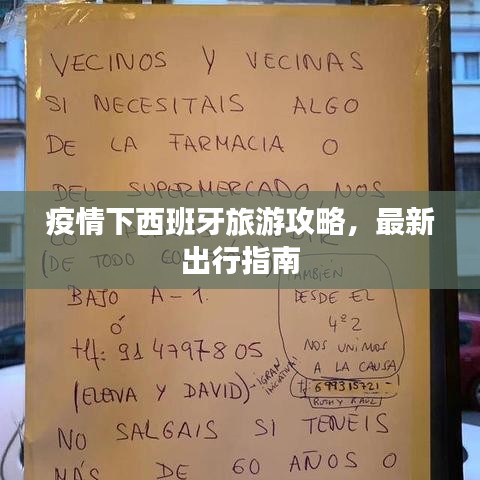 VECINOS Y VECINAS
SI NECESITAIS ALGO
DE LA FARMACIA O
DEL SUPERMERCADO, NOS
疫情下西班牙旅游攻略，最新
出行指南
(DE TODO
BAJO A-1.
Ó
tlf: 91 4797805
(ELENA Y DAVID)
¡GRAN
INICIATIVA!
TAMBIÉN
DESDE EL
4º2
NOS UNIMOS
A LA CAUSA
tf: 699315721
RUTH Y RAUL
NO SALGAIS SI TENÉIS
MÁS DE 60 AÑOS O